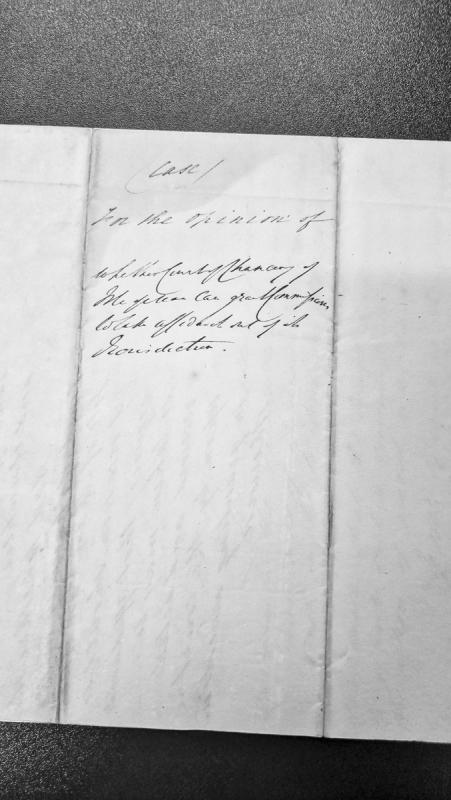 (Case)
For the opinion of
whether Court of Chancery of
Isle of Man can grant Commissions
to take affidavit out of its
Jurisdiction.